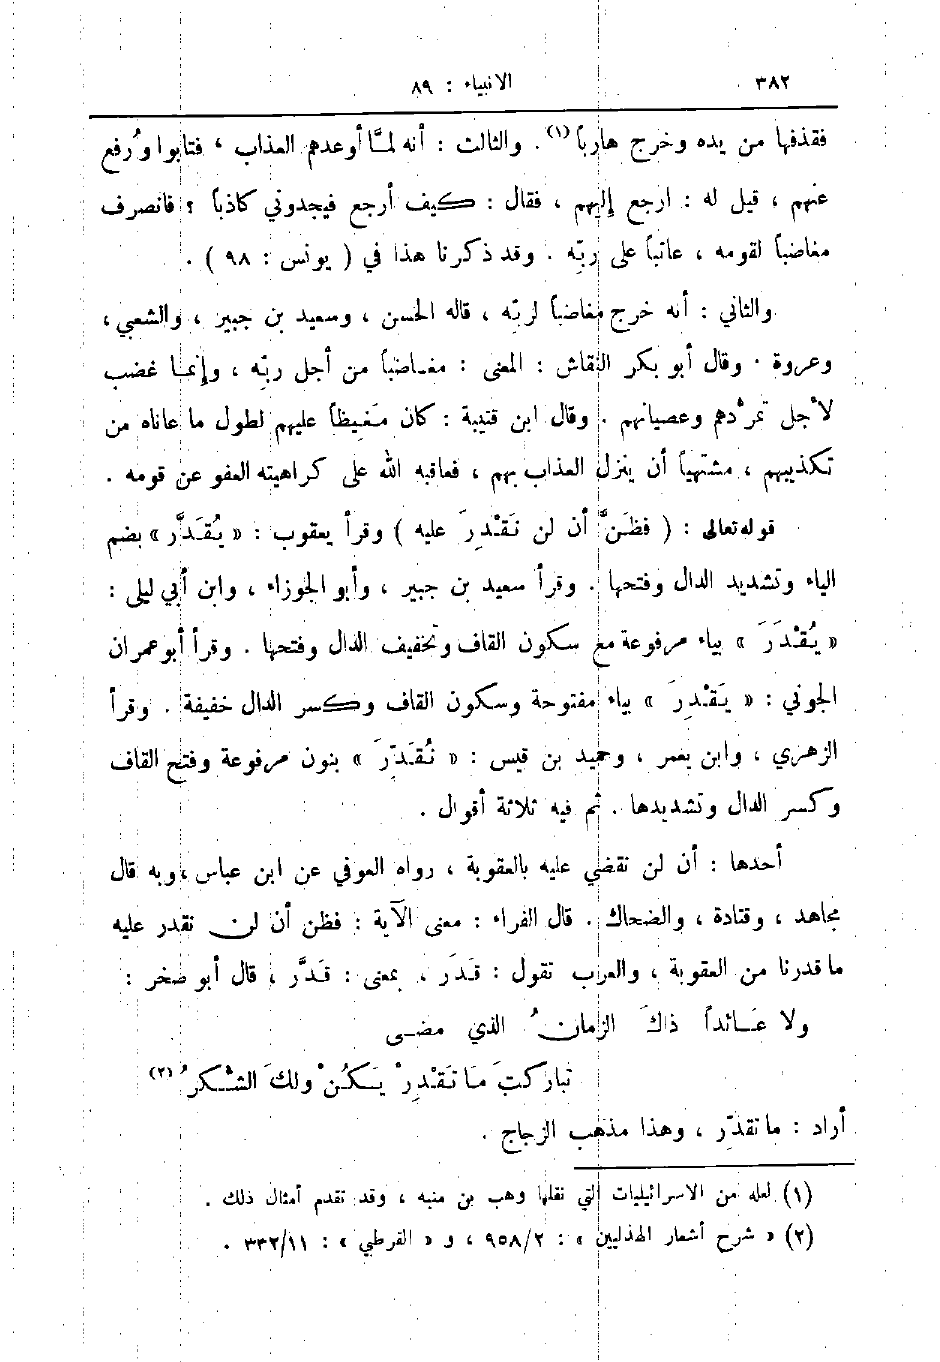 ٣٨٢
الانبياء : ٨٩
فقذفها من يده وخرج هارباً (١) . والثالث : أنه لمَّا أوعدهم العذاب ، فتابوا ورُفع
عنهم ، قيل له : ارجع إليهم ، فقال : كيف أرجع فيجدوني كاذباً ؟ فانصرف
مغاضباً لقومه ، عاتباً على ربِّه . وقد ذكرنا هذا في ( يونس : ٩٨ ) .
والثاني : أنه خرج مغاضباً لربِّه ، قاله الحسن ، وسعيد بن جبير ، والشعبي ،
وعروة . وقال أبو بكر النقاش : المعنى : مغاضباً من أجل ربِّه ، وإنما غضب
لأجل تمرُّدهم وعصيانهم . وقال ابن قتيبة : كان مَغيظاً عليهم لطول ما عاناه من
تكذيبهم ، مشتهياً أن ينزل العذاب بهم ، فعاقبه الله على كراهيته العفو عن قومه .
قوله تعالى : ( فظَنَّ أن لن نَقْدِرَ عليه ) وقرأ يعقوب : « يُقَدَّر » بضم
الياء وتشديد الدال وفتحها . وقرأ سعيد بن جبير ، وأبو الجوزاء ، وابن أبي ليلى :
« يُقْدَرَ » بياء مرفوعة مع سكون القاف وتخفيف الدال وفتحها . وقرأ أبو عمران
الجوني : « يَقْدِرَ » بياء مفتوحة وسكون القاف وكسر الدال خفيفة . وقرأ
الزهري ، وابن يعمر ، وحميد بن قيس : « نُقَدِّرَ » بنون مرفوعة وفتح القاف
وكسر الدال وتشديدها . ثم فيه ثلاثة أقوال .
أحدها : أن لن نقضي عليه بالعقوبة ، رواه العوفي عن ابن عباس ، وبه قال
مجاهد ، وقتادة ، والضحاك . قال الفراء : معنى الآية : فظن أن لن نقدر عليه
ما قدرنا من العقوبة ، والعرب تقول : قَدَر ، بمعنى : قَدَّر ، قال أبو صخر :
ولا عَائداً ذاكَ الزمانُ الذي مضى
تباركتَ مَا تَقْدِرْ يَكُنْ ولكَ الشكرُ (٢)
أراد : ما تقدِّر ، وهذا مذهب الزجاج .
(١) لعله من الاسرائيليات التي نقلها وهب بن منبه ، وقد تقدم أمثال ذلك .
(٢) « شرح أشعار الهذليين » : ٩٥٨/٢ ، و « القرطبي » : ٣٣٢/١١ .